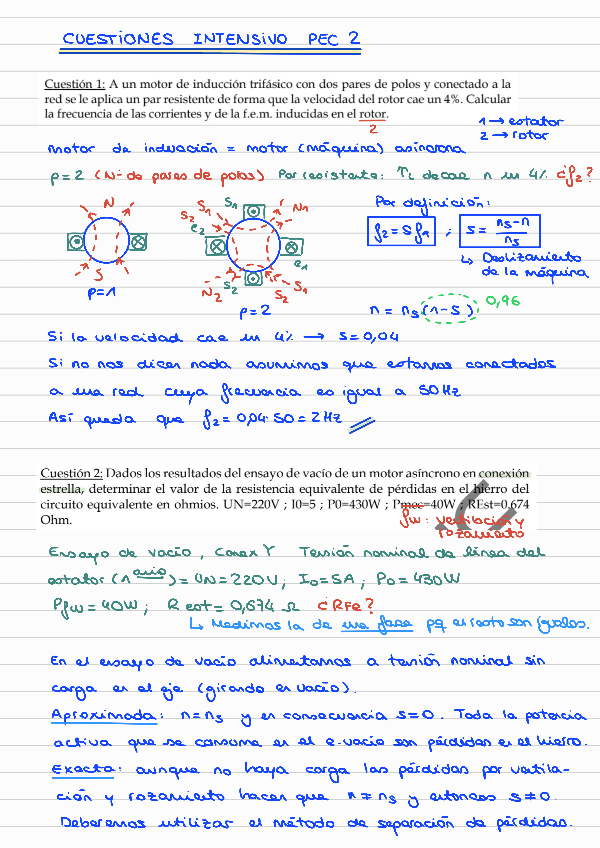 CUESTIONES INTENSIVO PEC 2
Cuestión 1: A un motor de inducción trifásico con dos pares de polos y conectado a la
red se le aplica un par resistente de forma que la velocidad del rotor cae un 4%. Calcular
la frecuencia de las corrientes y de la f.e.m. inducidas en el rotor.
2
1 → estator
2 → rotor
Motor de inducción = motor (máquina) asíncrona
p=2 (Nº de pares de polos) Par resistente: TL decae n un 4% ¿f2?
Por definición:
N
S
p=1
S1
S2
e2
N1
e1
N2
S2
S2
S1
p=2
f2 = S f1 ; S = ns-n / ns
↳ Deslizamiento
de la máquina
n = ns (1-S) 0,96
Si la velocidad cae un 4% → S=0,04
Si no nos dicen nada asumimos que estamos conectados
a una red cuya frecuencia es igual a 50Hz
Así queda que f2 = 0,04·50 = 2Hz
Cuestión 2: Dados los resultados del ensayo de vacío de un motor asíncrono en conexión
estrella, determinar el valor de la resistencia equivalente de pérdidas en el hierro del
circuito equivalente en ohmios. UN=220V ; I0=5 ; P0=430W ; Pmec=40W ; REst=0.674
Ohm.
fw: ventilación y
rozamiento
Ensayo de vacío, Conex Y Tensión nominal de línea del
estator (1ario) = UN = 220V; I0 = 5A; P0 = 430W
Pfw = 40W; R est = 0,674 Ω ¿RFe?
↳ Medimos la de una fase pq el resto son iguales.
En el ensayo de vacío alimentamos a tensión nominal sin
carga en el eje (girando en vacío).
Aproximada: n=ns y en consecuencia s=0. Toda la potencia
activa que se consume en el e.vacío son pérdidas en el hierro.
Exacta: aunque no haya carga las pérdidas por ventila-
ción y rozamiento hacen que n≠ns y entonces s≠0.
Deberemos utilizar el método de separación de pérdidas.